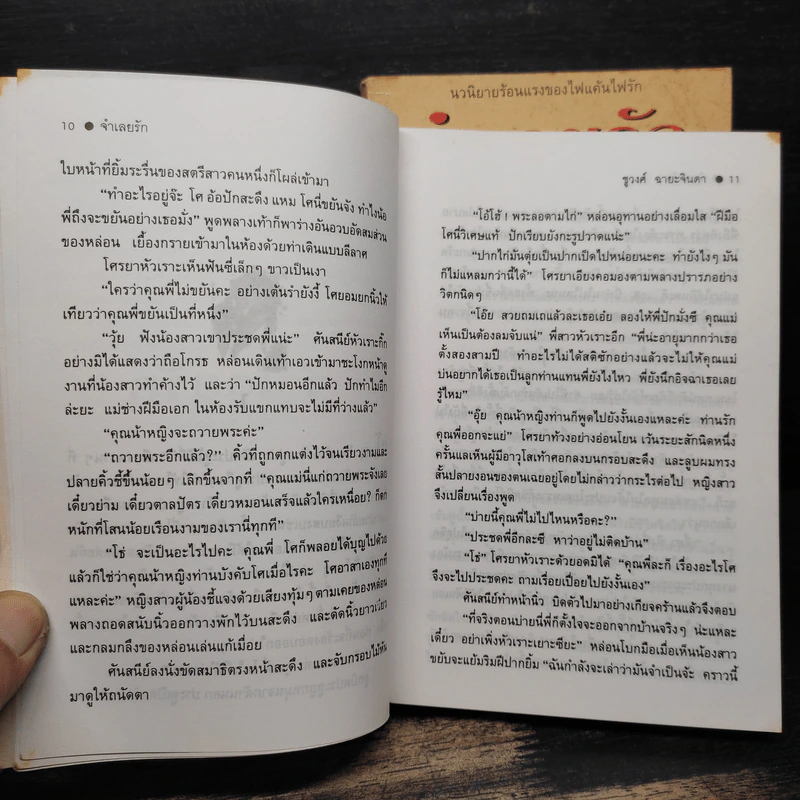 นวนิยายร้อนแรงของไฟแค้นไฟรัก
10 ● จำเลยรัก
ใบหน้าที่ยิ้มระรื่นของสตรีสาวคนหนึ่งก็โผล่เข้ามา
“ทำอะไรอยู่จ๊ะ โศ อ้อปักสะดึง แหม โศนี่ขยันจัง ทำไงน้อ
พี่ถึงจะขยันอย่างเธอมั่ง” พูดพลางเท้าก็พาร่างอันอวบอัดสมส่วน
ของหล่อน เยื้องกรายเข้ามาในห้องด้วยท่าเดินแบบลีลาศ
โศรยาหัวเราะเห็นฟันซี่เล็กๆ ขาวเป็นเงา
“ใครว่าคุณพี่ไม่ขยันคะ อย่างเต้นรำยังงี้ โศยอมยกนิ้วให้
เทียวว่าคุณพี่ขยันเป็นที่หนึ่ง”
“วุ้ย ฟังน้องสาวเขาประชดพี่แน่ะ” ศันสนีย์หัวเราะกิ๊ก
อย่างมิได้แสดงว่าถือโกรธ หล่อนเดินเท้าเอวเข้ามาชะโงกหน้าดู
งานที่น้องสาวทำค้างไว้ และว่า “ปักหมอนอีกแล้ว ปักทำไมอีก
ล่ะยะ แม่ช่างฝีมือเอก ในห้องรับแขกแทบจะไม่มีที่ว่างแล้ว”
“คุณน้าหญิงจะถวายพระค่ะ”
“ถวายพระอีกแล้ว?” คิ้วที่ถูกตกแต่งไว้จนเรียวงามและ
ปลายคิ้วชี้ขึ้นน้อยๆ เลิกขึ้นจากที่ “คุณแม่นี่แก่ถวายพระจังเลย
เดี๋ยวย่าม เดี๋ยวตาลปัตร เดี๋ยวหมอนเสร็จแล้วใครเหนื่อย? ก็ตก
หนักที่โสนน้อยเรือนงามของเรานี่ทุกที”
“โธ่ จะเป็นอะไรไปคะ คุณพี่ โศก็พลอยได้บุญไปด้วย
แล้วก็ใช่ว่าคุณน้าหญิงท่านบังคับโศเมื่อไรคะ โศอาสาเองทุกที
แหละค่ะ” หญิงสาวผู้น้องชี้แจงด้วยเสียงทุ้มๆ ตามเคยของหล่อน
พลางถอดสนับนิ้วออกวางพักไว้บนสะดึง และดัดนิ้วยาวเรียว
และกลมกลึงของหล่อนเล่นแก้เมื่อย
ศันสนีย์ลงนั่งขัดสมาธิตรงหน้าสะดึง และจับกรอบไม้หัน
มาดูให้ถนัดตา
ชูวงศ์ ฉายะจินดา ● 11
“โอ้โฮ้! พระลอตามไก่” หล่อนอุทานอย่างเลื่อมใส “ฝีมือ
โศนี่วิเศษแท้ ปักเรียบยังกะรูปวาดแน่ะ”
“ปากไก่มันตุ่ยเป็นปากเป็ดไปหน่อยนะคะ ทำยังไงๆ มัน
ก็ไม่แหลมกว่านี้ได้” โศรยาเอียงคอมองตามพลางปรารภอย่าง
วิตกนิดๆ
“โอ๊ย สวยถมเถแล้วละเธอเอ๋ย ลองให้พี่ปักมั่งซี คุณแม่
เห็นเป็นต้องลมจับแน่” พี่สาวหัวเราะอีก “พี่น่ะอายุมากกว่าเธอ
ตั้งสองสามปี ทำอะไรไม่ได้สติซักอย่างแล้วจะไม่ให้คุณแม่
บ่นอยากได้เธอเป็นลูกท่านแทนพี่ยังไงไหว พี่ยังนึกอิจฉาเธอเลย
รู้ไหม”
“อุ๊ย คุณน้าหญิงท่านก็พูดไปยังงั้นเองแหละค่ะ ท่านรัก
คุณพี่ออกจะแย่” โศรยาท้วงอย่างอ่อนโยน เว้นระยะสักนิดหนึ่ง
ครั้นแลเห็นผู้มีอาวุโสเท้าศอกลงบนกรอบสะดึง และลูบผมทรง
สั้นปลายงอนของตนเฉยอยู่โดยไม่กล่าวว่ากระไรต่อไป หญิงสาว
จึงเปลี่ยนเรื่องพูด
“บ่ายนี้คุณพี่ไม่ไปไหนหรือคะ?”
“ประชดพี่อีกละซี หาว่าอยู่ไม่ติดบ้าน”
“โธ่” โศรยาหัวเราะด้วยอดมิได้ “คุณพี่ละก็ เรื่องอะไรโศ
จึงจะไปประชดคะ ถามเรื่อยเปื่อยไปยังงั้นเอง”
ศันสนีย์ทำหน้านิ่ว บิดตัวไปมาอย่างเกียจคร้านแล้วจึงตอบ
“ที่จริงตอนบ่ายนี่พี่ก็ตั้งใจจะออกจากบ้านจริงๆ น่ะแหละ
เดี๋ยว อย่าเพิ่งหัวเราะเยาะซียะ” หล่อนโบกมือเมื่อเห็นน้องสาว
ขยับจะแย้มริมฝีปากยิ้ม “ฉันกำลังจะเล่าว่ามันจำเป็นจ้ะ คราวนี้